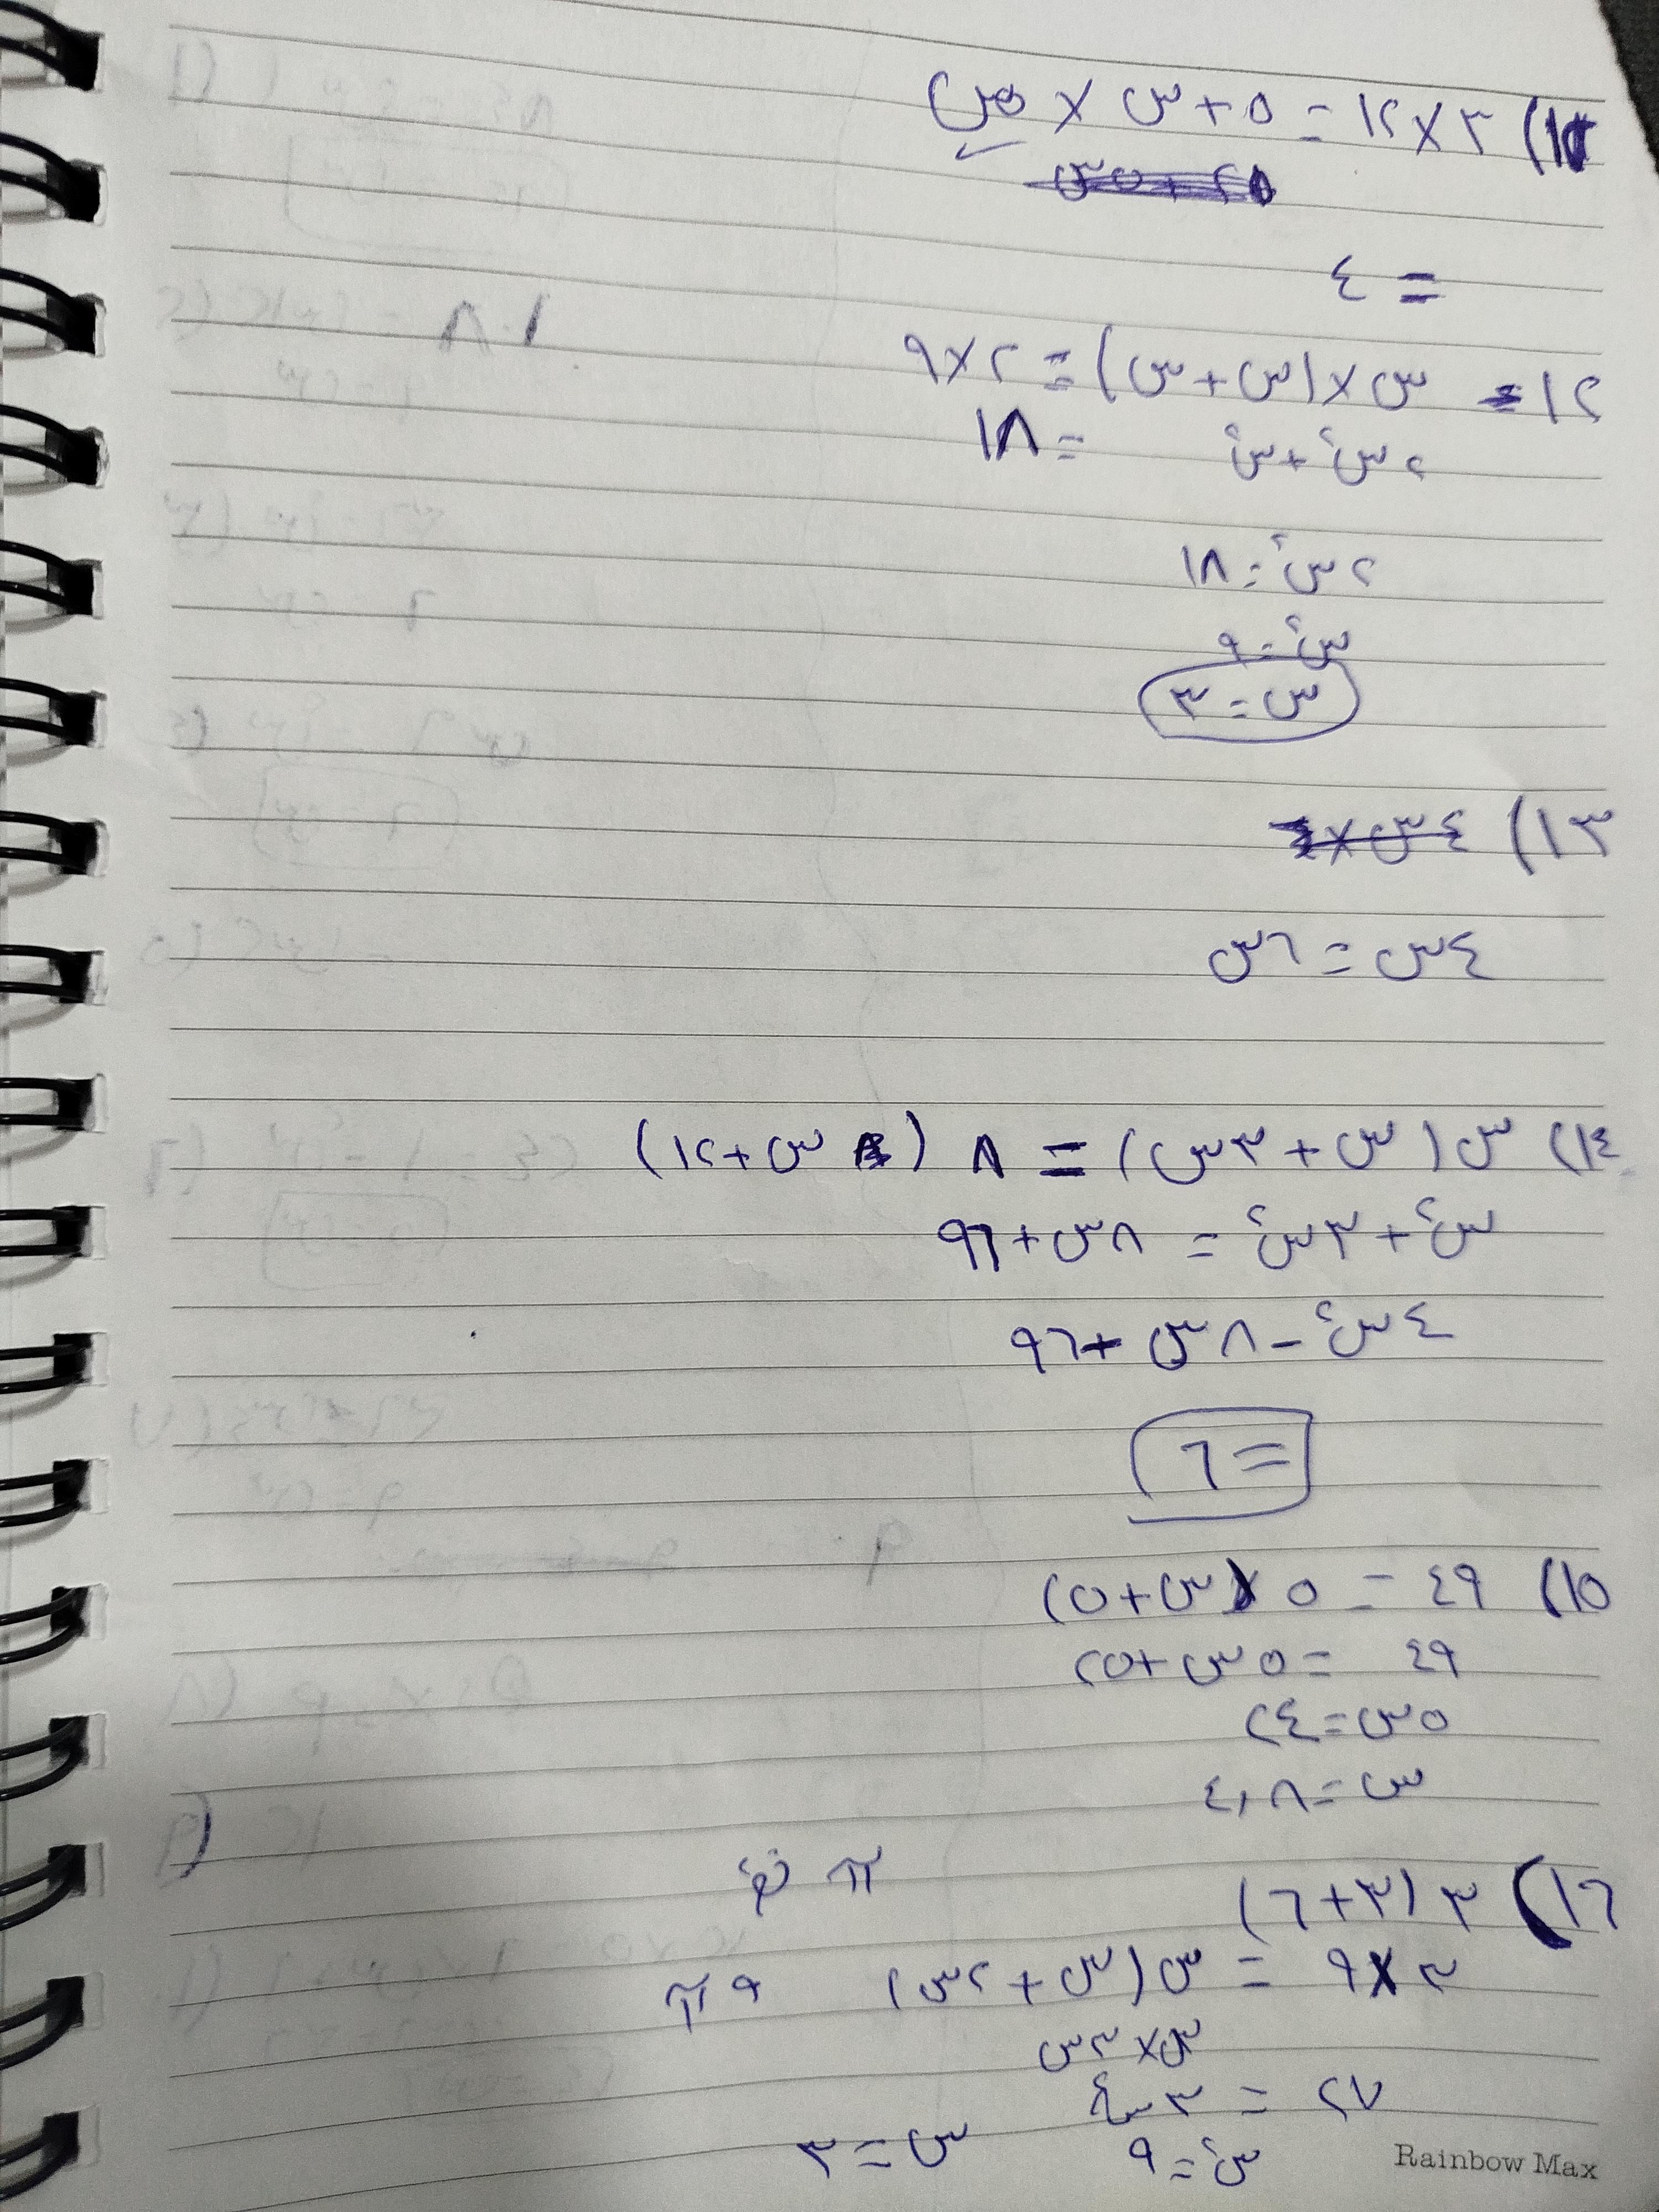 ١١) ٣×١٢ = ٥+س ×
= ٤
١٢ س×(س+س) = ٢×٩
س٢+س٢ = ١٨
٢س٢ = ١٨
س٢ = ٩
س = ٣
١٣)
٤س = ٦س
١٤) س(س+٣س) = ٨ (س+١٢)
س٢+٣س٢ = ٨س+٩٦
٤س٢-٨س+٩٦
= ٦
١٥) ٤٩ = ٥ (س+٥)
٤٩ = ٥س+٢٥
٥س=٢٤
س=٤,٨
١٦) ٣(٣+٦) π نق٢
٣×٩ = س(س+٢س) π ٩
س×٣س
٢٧ = ٣س٢
س٢=٩ س=٣
Rainbow Max